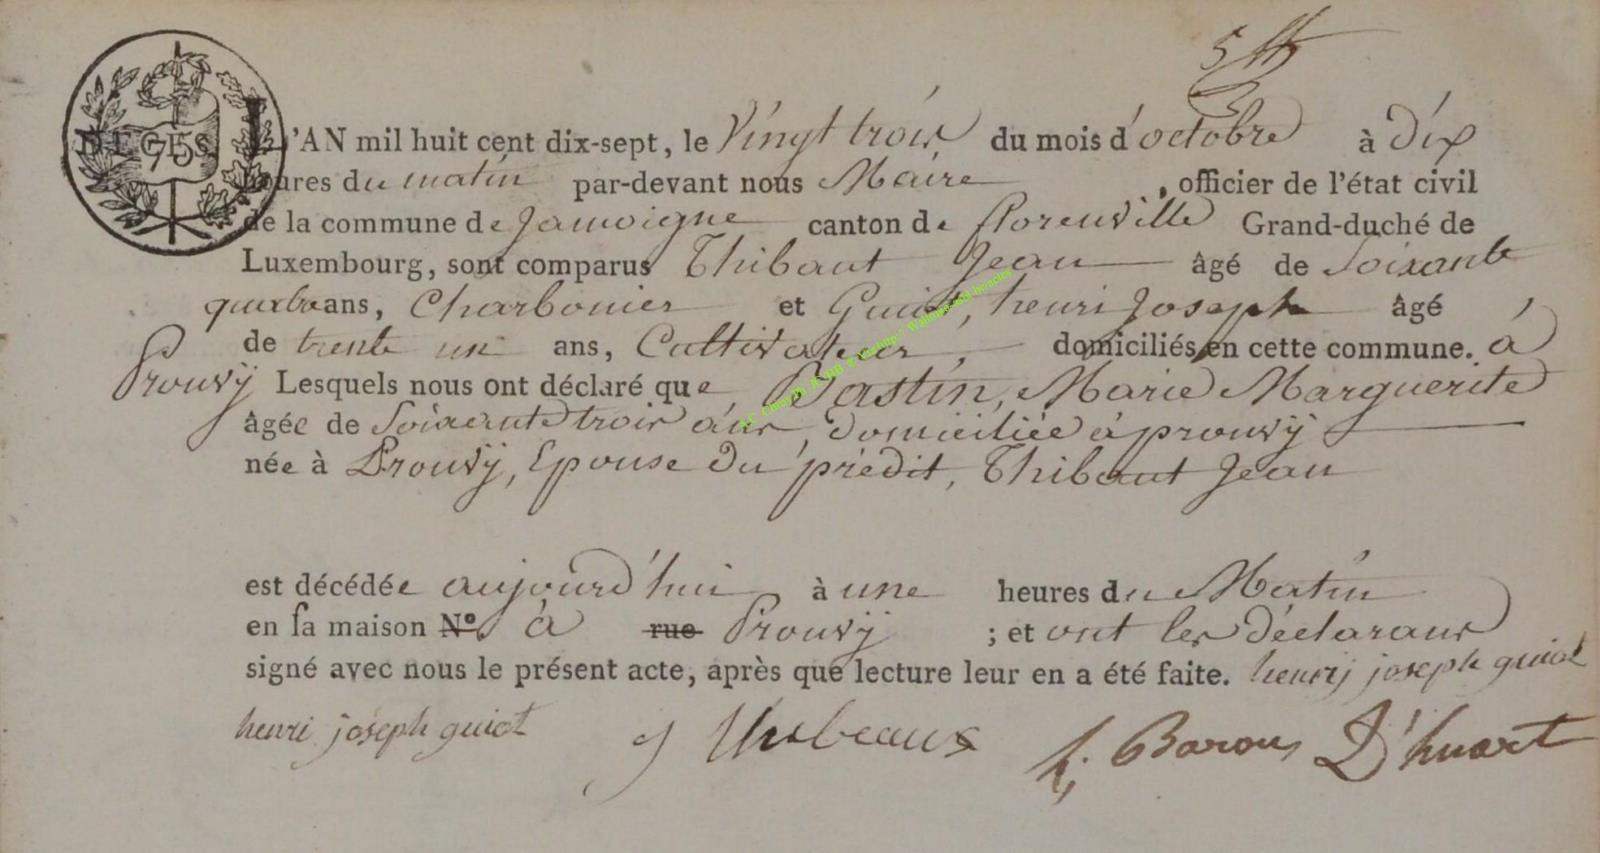 DÉCÈS
75
L'AN mil huit cent dix-sept, le Vingt trois du mois d'octobre à dix
heures du matin par-devant nous Maire, officier de l'état civil
de la commune de Jamoigne canton de florenville Grand-duché de
Luxembourg, sont comparus Thibaut Jean âgé de Soixante
quatre ans, Charbonier et Guiot, henri Joseph âgé
de trente un ans, Cultivateur, domiciliés en cette commune. à
Prouvÿ Lesquels nous ont déclaré que Bastin, Marie Marguerite
âgée de Soixante trois ans, domiciliée à prouvÿ
née à Prouvÿ, Epouse du prédit, Thibaut Jean
est décédée aujourd'hui à une heures du Matin
en sa maison N°. à rue Prouvÿ ; et ont les déclarans
signé avec nous le présent acte, après que lecture leur en a été faite. henrij joseph guiot
henri joseph guiot J Thibeaux h; Baron D'huart